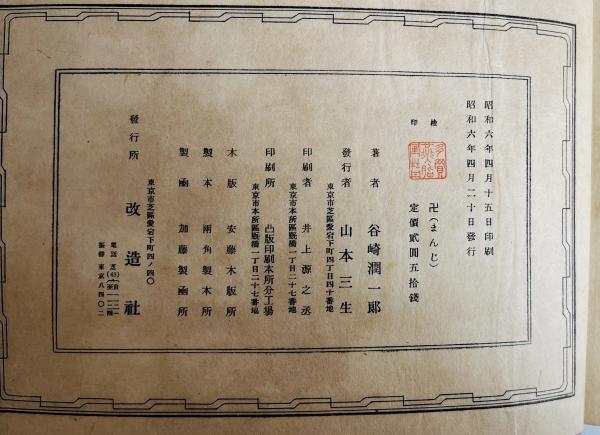 昭和六年四月十五日印刷
昭和六年四月二十日發行
檢印
卍(まんじ)
定價貳圓五拾錢
著者 谷崎潤一郎
發行者 山本三生
東京市芝區愛宕下町四丁目四十番地
印刷者 井上源之丞
東京市本所區厩橋一丁目二十七番地
印刷所 凸版印刷本所分工場
東京市本所區厩橋一丁目二十七番地
木版 安藤木版所
製本 兩角製本所
製凾 加藤製凾所
東京市芝區愛宕下町四ノ四〇
發行所 改造社
振替 東京八四〇二